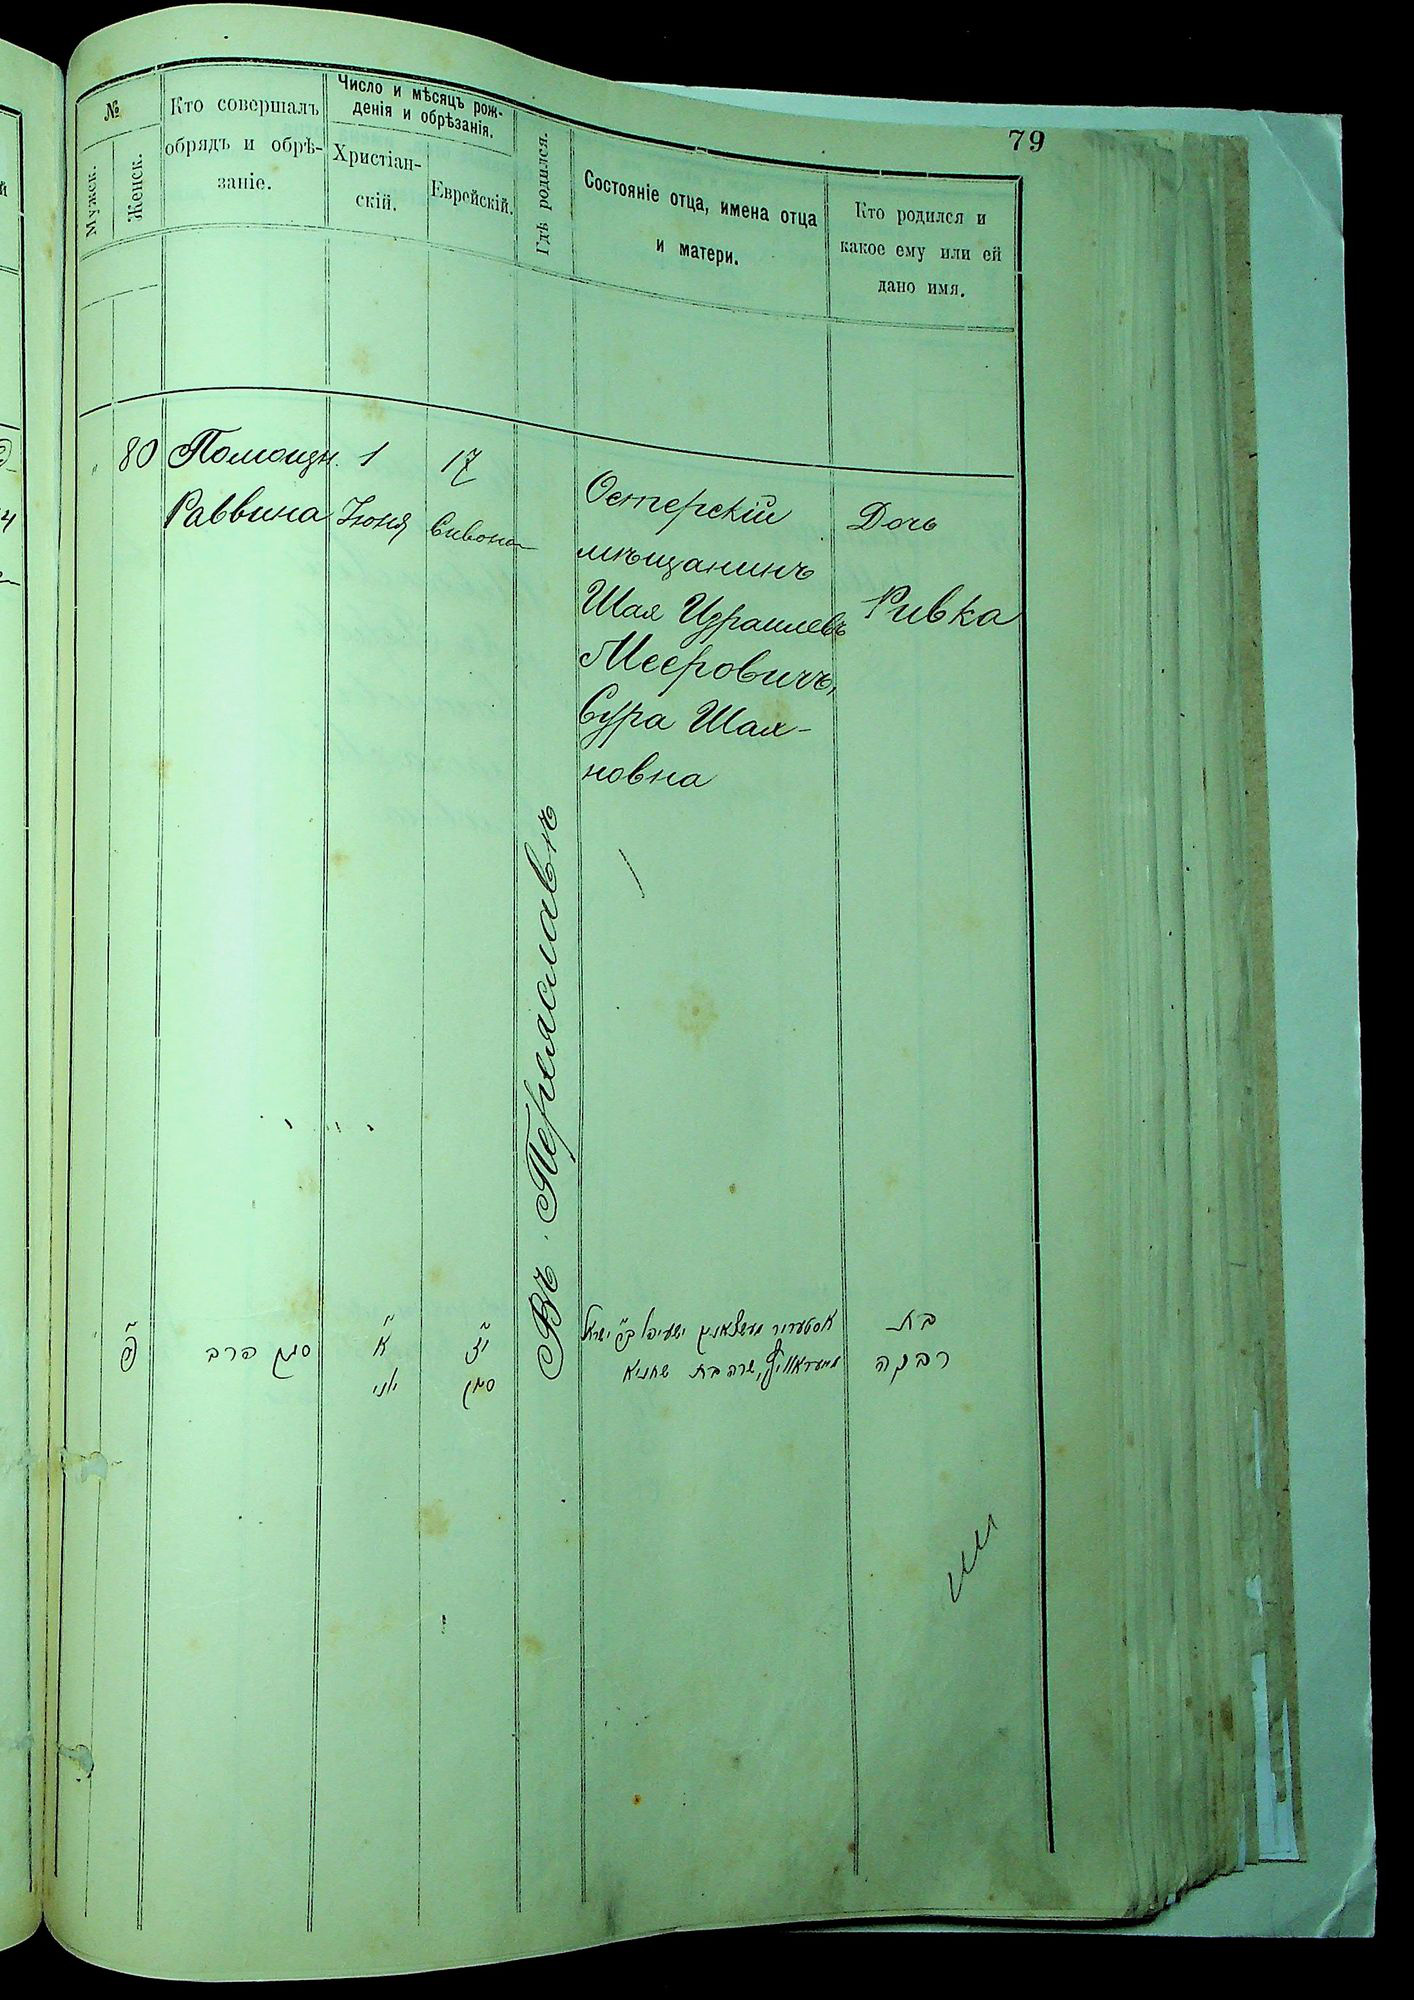 79
№
Мужск.
Женск.
Кто совершалъ
обрядъ и обрѣ-
заніе.
Число и мѣсяцъ рож-
денія и обрѣзанія.
Христіан-
скій.
Еврейскій.
Гдѣ родился.
Состояніе отца, имена отца
и матери.
Кто родился и
какое ему или ей
дано имя.
" 80
Помощн.
Раввина
1
Іюня
17
Сивона
Въ Переяславѣ
Остерскій
мѣщанинъ
Шая Израилевъ
Мееровичъ,
Сура Шая-
новна
Дочь
Ривка
פ"
סגן הרב
א"
יוני
י"ז
סיון
שרה בת
בת
רבקה